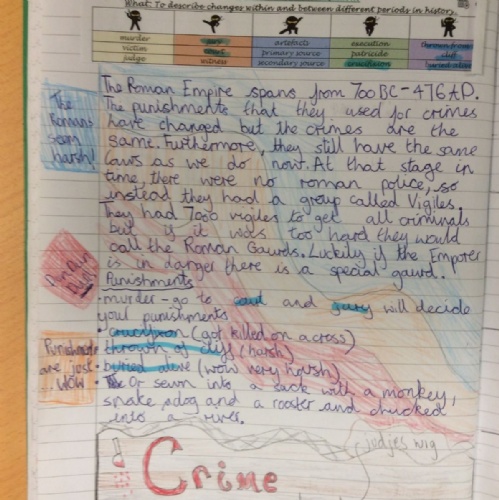 What: To describe changes within and between different periods in history.
murder jury artefacts execution thrown from
victim court primary source patricide cliff
judge witness secondary source crucifixion buried alive
The Roman Empire spans from 700BC-476AD.
The punishments that they used for crimes
have changed but the crimes are the
same. Furthermore, they still have the same
laws as we do now. At that stage in
time, there were no roman police, so
instead they had a group called Vigiles.
They had 7000 vigiles to get all criminals
but if it was too hard they would
call the Roman Gaurds. Luckily if the Emporer
is in danger there is a special gaurd.
Punishments
·murder-go to and jury will decide
your punishments
· (got killed on a cross)
· thrown of cliff (harsh)
· buried alive (wow very harsh)
· Or sewn into a sack with a monkey,
snake, dog and a rooster and chucked
into a river.
The
Romans
seem
harsh!
Punishments
are just
... wow
judjes wig
Crime